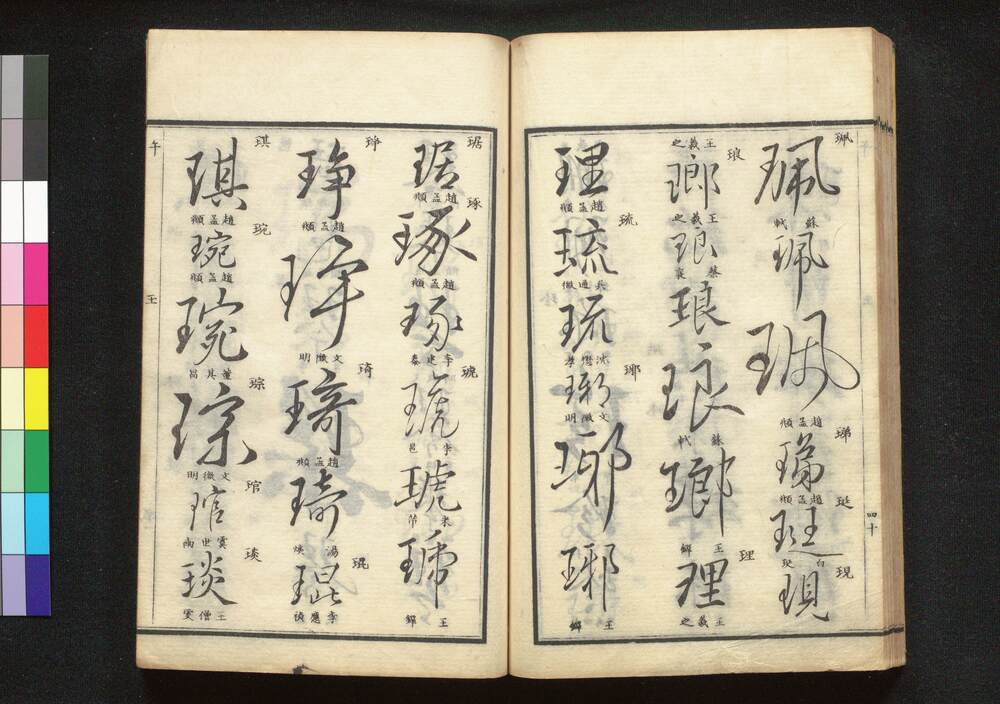 珮
珮
蘇軾
珮
珮
趙孟頫
珶
珶
趙孟頫
珽
珽
現
現
琅
王羲之
瑯
王羲之
琅
蔡襄
琅
琅
蘇軾
瑯
王鐸
理
理
王羲之
理
趙孟頫
琉
琉
琉
琊
琊
文徵明
琊
琊
王鐸
四十
琚
琚
趙孟頫
琢
琢
趙孟頫
琢
李建泰
琥
琥
李邕
琥
米芾
琥
王鐸
琤
琤
趙孟頫
琤
文徵明
琦
琦
趙孟頫
琦
湯煥
琨
琨
李應禎
琪
琪
趙孟頫
琬
琬
趙孟頫
琬
董其昌
琮
琮
文徵明
琯
琯
虞世南
琰
琰
王僧虔
午
王